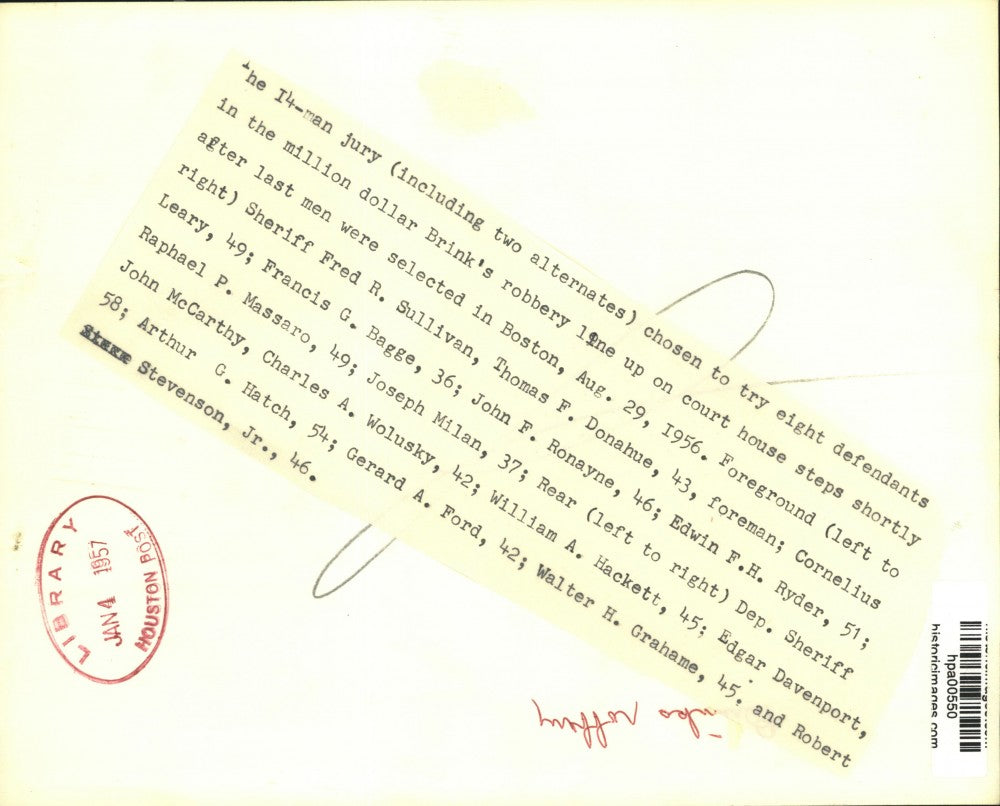 he I4-man jury (including two alternates) chosen to try eight defendants
in the million dollar Brink's robbery line up on court house steps shortly
after last men were selected in Boston, Aug. 29, I956. Foreground (left to
right) Sheriff Fred R. Sullivan, Thomas F. Donahue, 43, foreman; Cornelius
Leary, 49; Francis G. Bagge, 36; John F. Ronayne, 46; Edwin F.H. Ryder, 51;
Raphael P. Massaro, 49; Joseph Milan, 37; Rear (left to right) Dep. Sheriff
John McCarthy, Charles A. Wolusky, 42; William A. Hackett, 45; Edgar Davenport,
58; Arthur G. Hatch, 54; Gerard A. Ford, 42; Walter H. Grahame, 45. and Robert
Stevenson, Jr., 46.
LIBRARY
JAN 4 1957
HOUSTON POST
robbery
hpa00550
historicimages.com